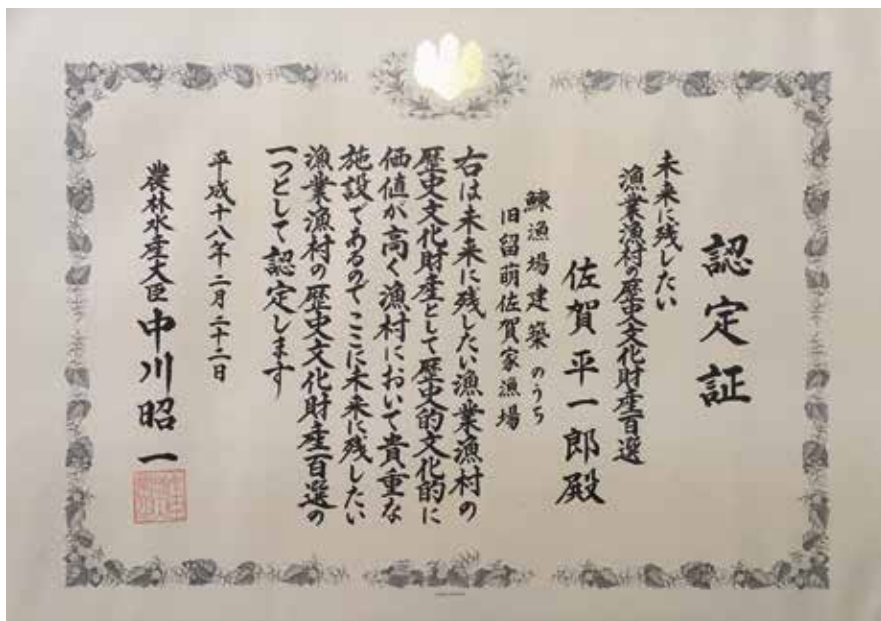 認定証
未来に残したい
漁業漁村の歴史文化財産百選
佐賀平一郎殿
鰊漁場建築のうち
旧留萌佐賀家漁場
右は未来に残したい漁業漁村の
歴史文化財産として歴史的文化的に
価値が高く漁村において貴重な
施設であるのでここに未来に残したい
漁業漁村の歴史文化財産百選の
一つとして認定します
平成十八年二月二十二日
農林水産大臣 中川昭一